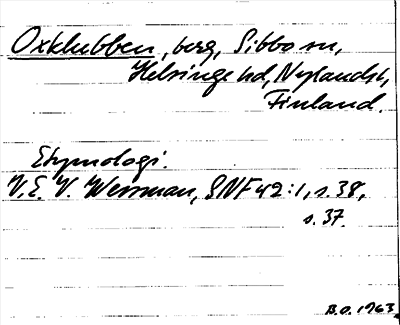 Oxklubben, berg, Sibbo sn,
Helsinge hd, Nylands l,
Finland.
Etymologi.
V.E.V. Wessman, SNF 42:1, s.38,
s.37.
B.O. 1963